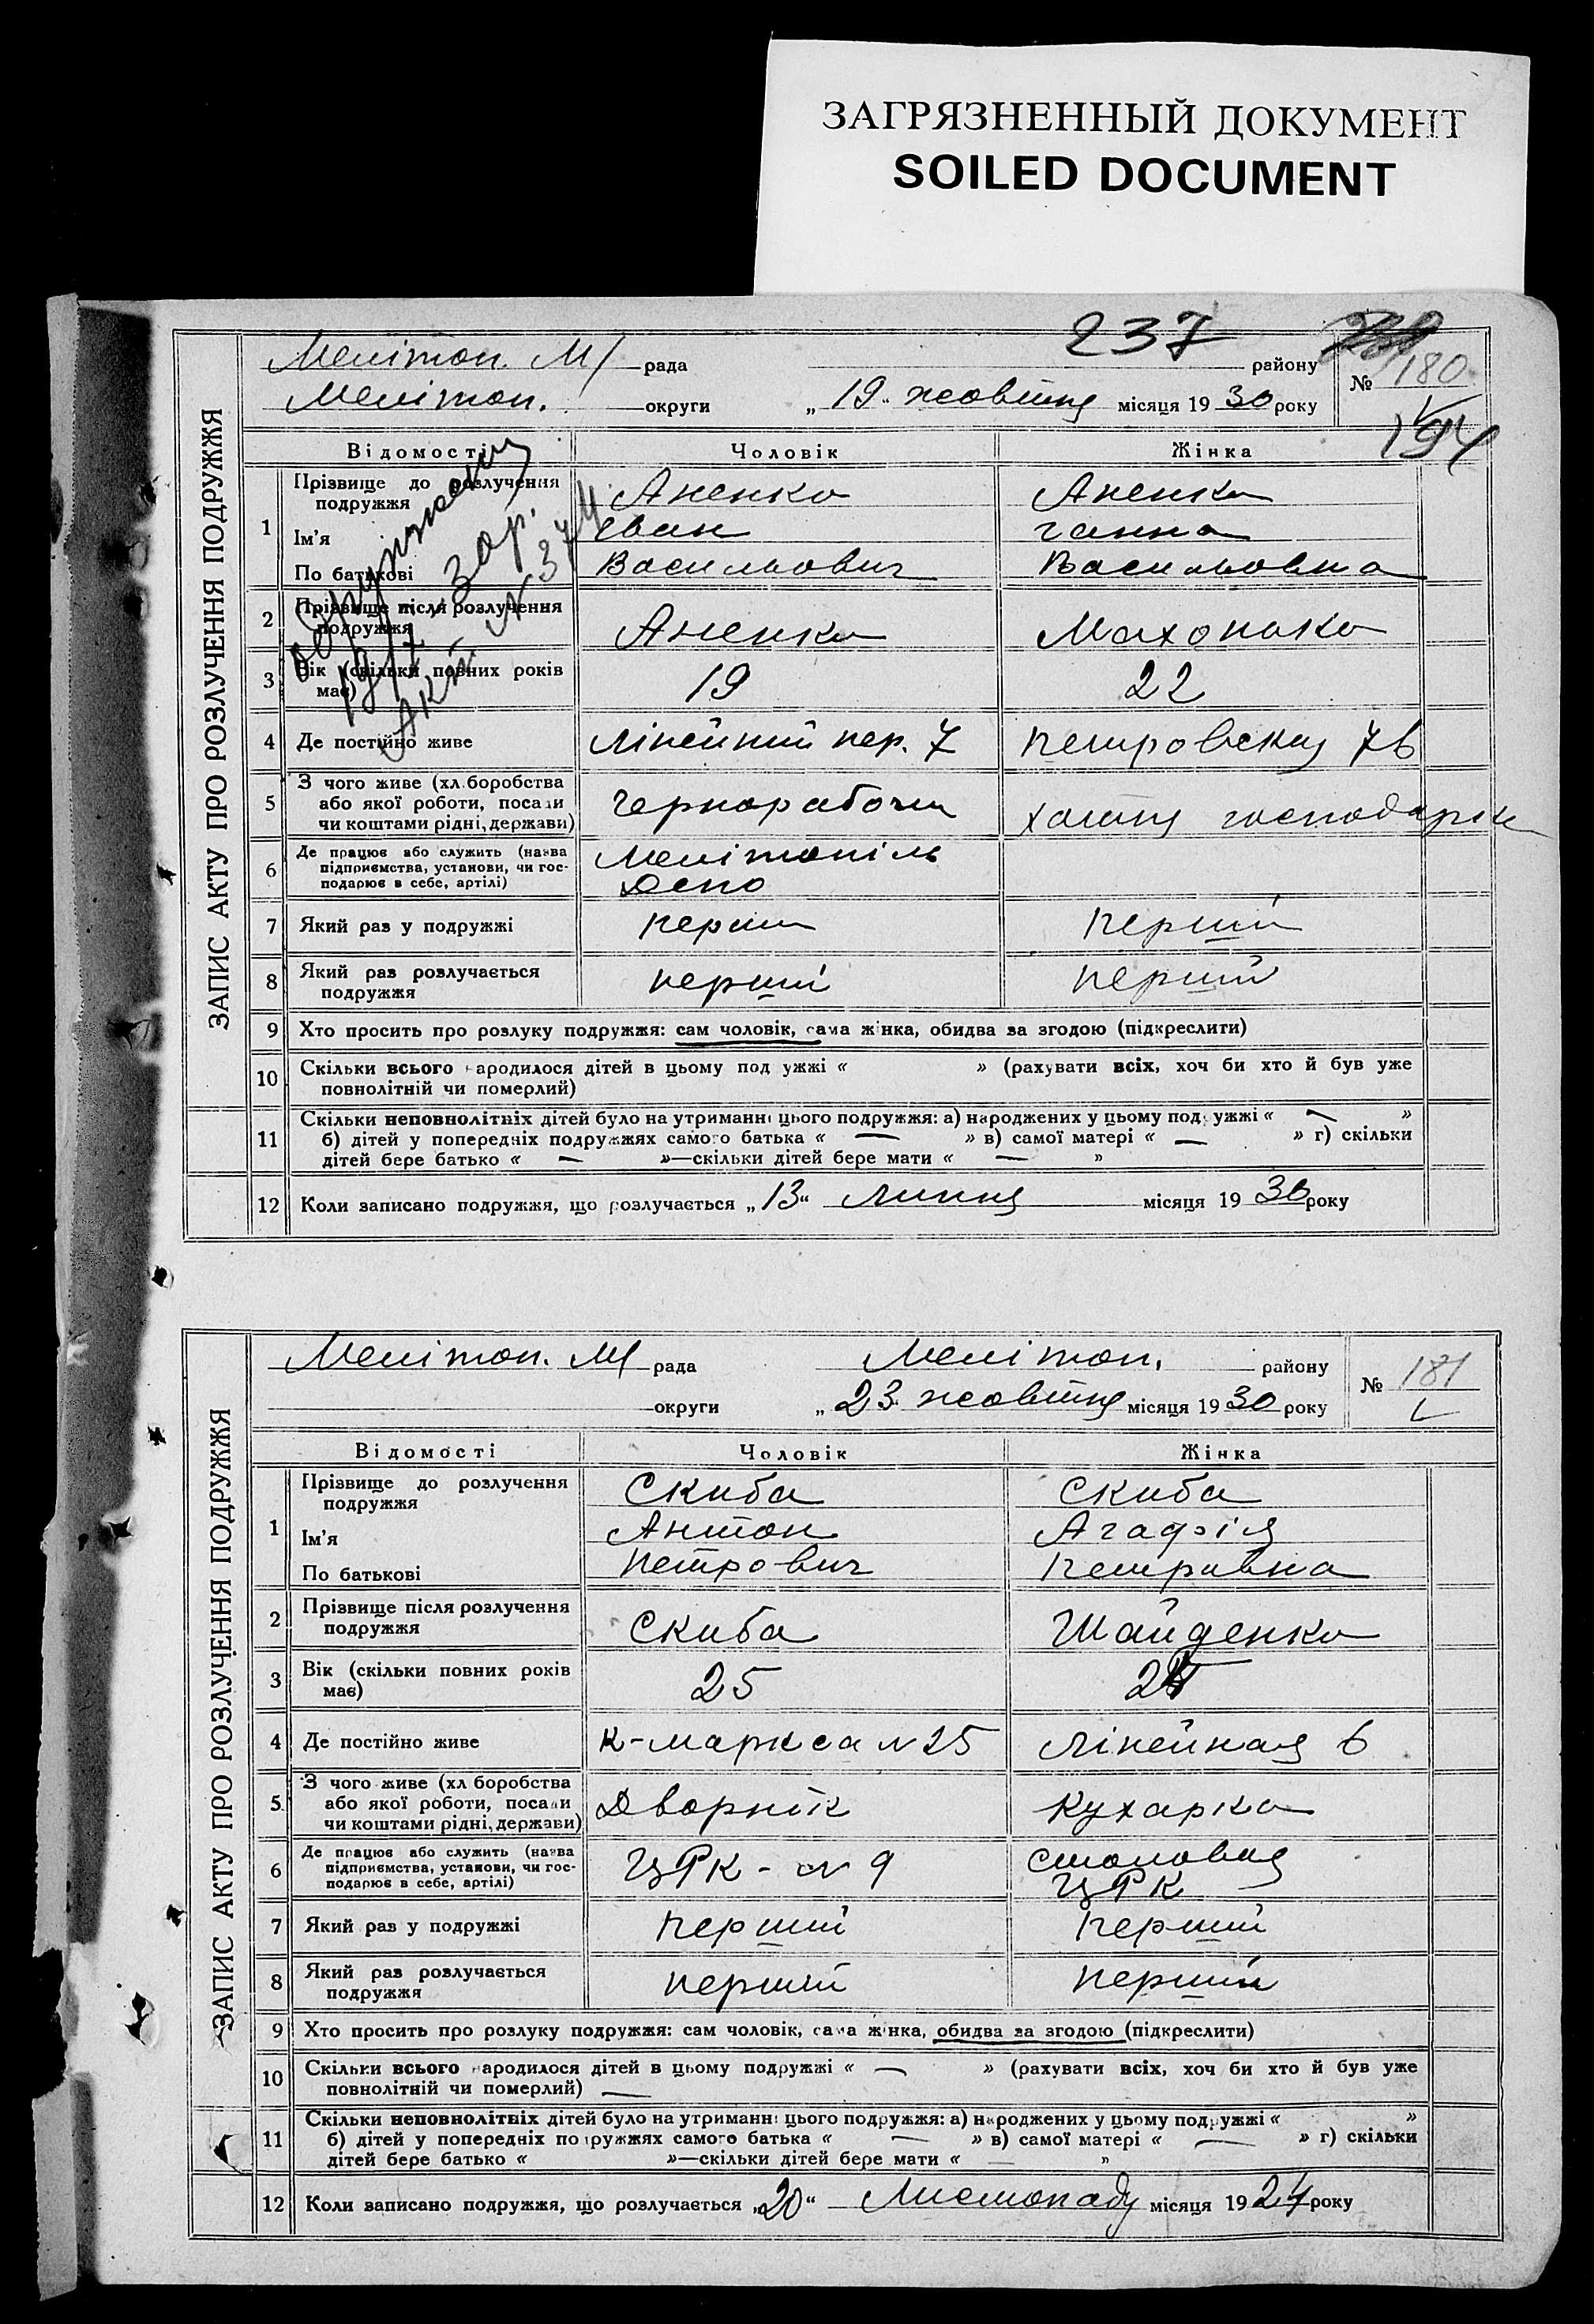 ЗАГРЯЗНЕННЫЙ ДОКУМЕНТ
SOILED DOCUMENT
237
ЗАПИС АКТУ ПРО РОЗЛУЧЕННЯ ПОДРУЖЖЯ
Мелітоп. М/ рада району № 180
Мелітоп. округи „19" жовтня місяця 1930 року
194
Відомості Чоловік Жінка
1 Прізвище до розлучення подружжя Аненко Аненко
Ім'я Іван Ганна
По батькові Васильович Васильовна
2 Прізвище після розлучення подружжя Аненко Махонько
3 Вік (скільки повних років має) 19 22
4 Де постійно живе Лінейний пер. 7 Петровская 76
5 З чого живе (хліборобства або якої роботи, посади чи коштами рідні, держави) Чернорабочи хатня господарка
6 Де працює або служить (назва підприємства, установи, чи господарює в себе, артілі) Мелітопіль Депо
7 Який раз у подружжі перший перший
8 Який раз розлучається подружжя перший перший
9 Хто просить про розлуку подружжя: сам чоловік, сама жінка, обидва за згодою (підкреслити)
10 Скільки всього народилося дітей в цьому подружжі « » (рахувати всіх, хоч би хто й був уже
повнолітній чи померлий)
11 Скільки неповнолітніх дітей було на утриманні цього подружжя: а) народжених у цьому подружжі « — »
б) дітей у попередніх подружжях самого батька « — » в) самої матері « — » г) скільки
дітей бере батько « — »—скільки дітей бере мати « — »
12 Коли записано подружжя, що розлучається „13" Липня місяця 1930 року
зар.
Акт № 374
ЗАПИС АКТУ ПРО РОЗЛУЧЕННЯ ПОДРУЖЖЯ
Мелітоп. М/ рада Мелітоп. району № 181
округи „23" жовтня місяця 1930 року
Відомості Чоловік Жінка
1 Прізвище до розлучення подружжя Скиба Скиба
Ім'я Антон Агафія
По батькові Петрович Петривна
2 Прізвище після розлучення подружжя Скиба Шайденко
3 Вік (скільки повних років має) 25
4 Де постійно живе К-Маркса № 25 Лінейная 6
5 З чого живе (хліборобства або якої роботи, посади чи коштами рідні, держави) Дворнік Кухарка
6 Де працює або служить (назва підприємства, установи, чи господарює в себе, артілі) ЦРК - № 9 столовая ЦРК
7 Який раз у подружжі перший перший
8 Який раз розлучається подружжя перший перший
9 Хто просить про розлуку подружжя: сам чоловік, сама жінка, обидва за згодою (підкреслити)
10 Скільки всього народилося дітей в цьому подружжі « — » (рахувати всіх, хоч би хто й був уже
повнолітній чи померлий) —
11 Скільки неповнолітніх дітей було на утриманні цього подружжя: а) народжених у цьому подружжі « »
б) дітей у попередніх подружжях самого батька « — » в) самої матері « — » г) скільки
дітей бере батько « »—скільки дітей бере мати « — »
12 Коли записано подружжя, що розлучається „20" Листопаду місяця 1924 року